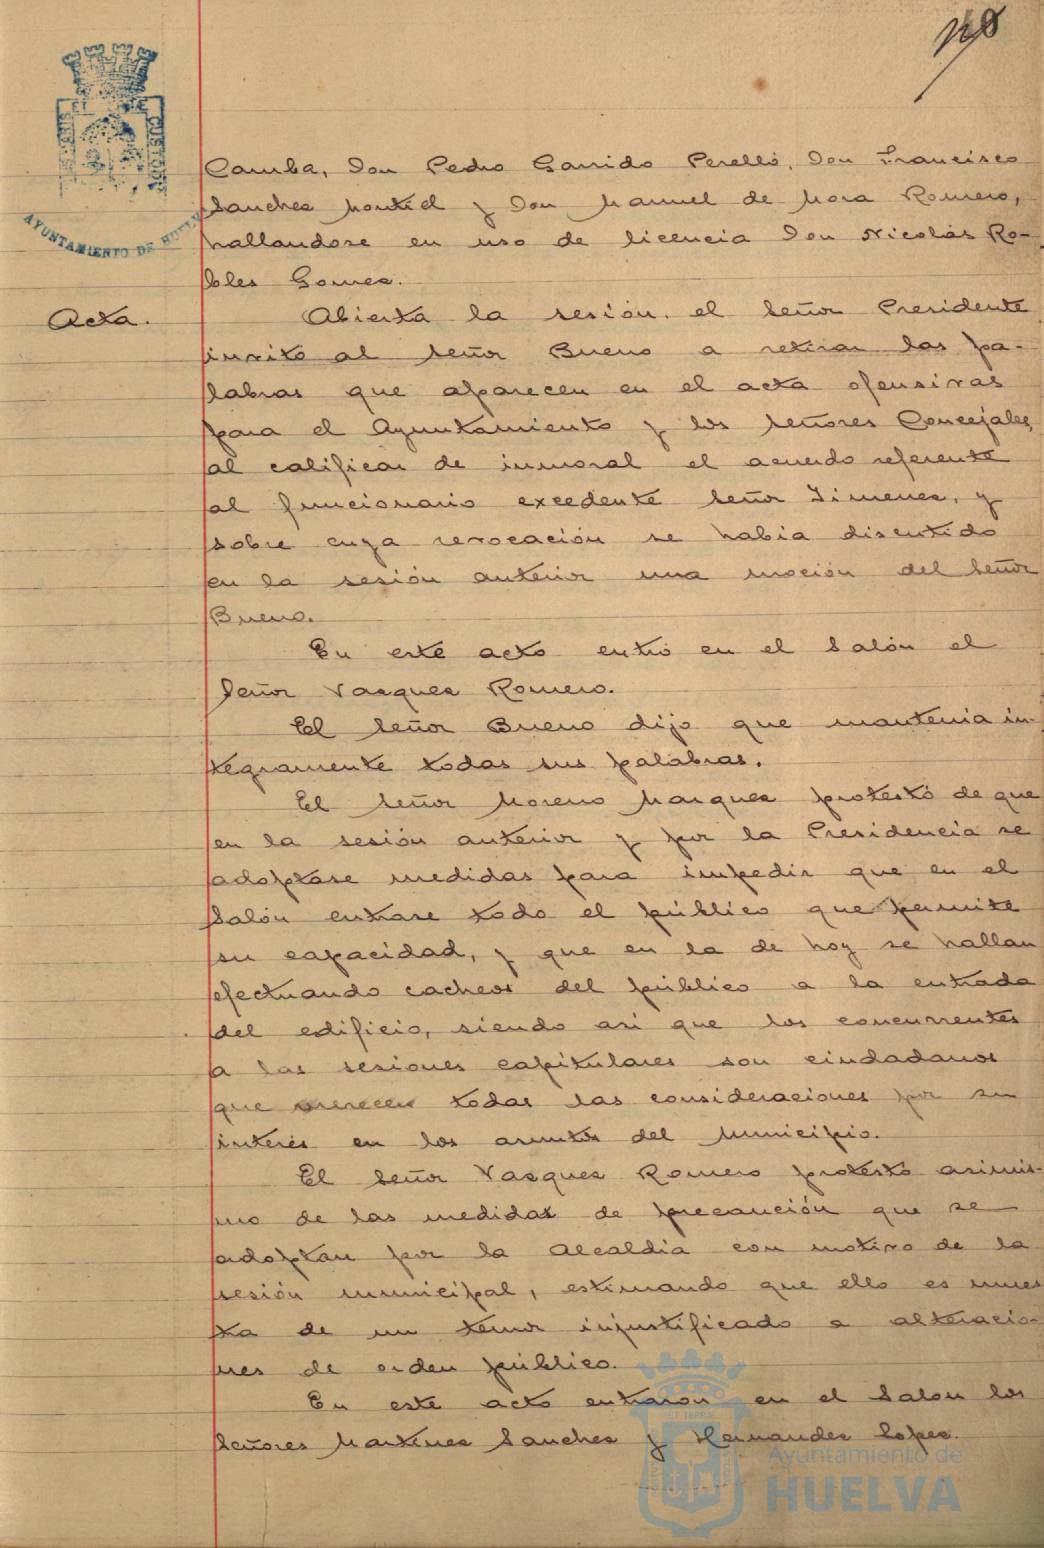 Camba, Don Pedro Garrido Perelló, Don Francisco
Sanchez Montiel y Don Manuel de Mora Romero,
hallandose en uso de licencia Don Nicolás Ro-
bles Gomez.
Acta.
Abierta la sesión, el Señor Presidente
invitó al Señor Bueno a retirar las pa-
labras que aparecen en el acta ofensivas
para el Ayuntamiento y los Señores Concejales,
al calificar de inmoral el acuerdo referente
al funcionario excedente Señor Jimenez, y
sobre cuya revocación se habia discutido
en la sesión anterior una moción del Señor
Bueno.
En este acto entró en el Salón el
Señor Vazquez Romero.
El Señor Bueno dijo que mantenia in-
tegramente todas sus palabras.
El Señor Moreno Marquez protestó de que
en la sesión anterior y por la Presidencia se
adoptase medidas para impedir que en el
Salón entrase todo el público que permite
su capacidad, y que en la de hoy se hallan
efectuando cacheos del público a la entrada
del edificio, siendo asi que los concurrentes
a las sesiones capitulares son ciudadanos
que merecen todas las consideraciones por su
interés en los asuntos del Municipio.
El Señor Vazquez Romero protestó asimis-
mo de las medidas de precaución que se
adoptan por la Alcaldia con motivo de la
sesión municipal, estimando que ello es mues
tra de un temor injustificado a alteracio-
nes de orden público.
En este acto entraron en el Salon los
Señores Martinez Sanchez y Hernandez Lopez.
AYUNTAMIENTO DE HUELVA
Ayuntamiento de
HUELVA